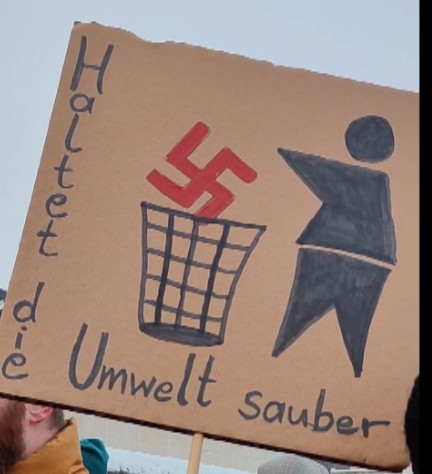 Haltet die
Umwelt sauber